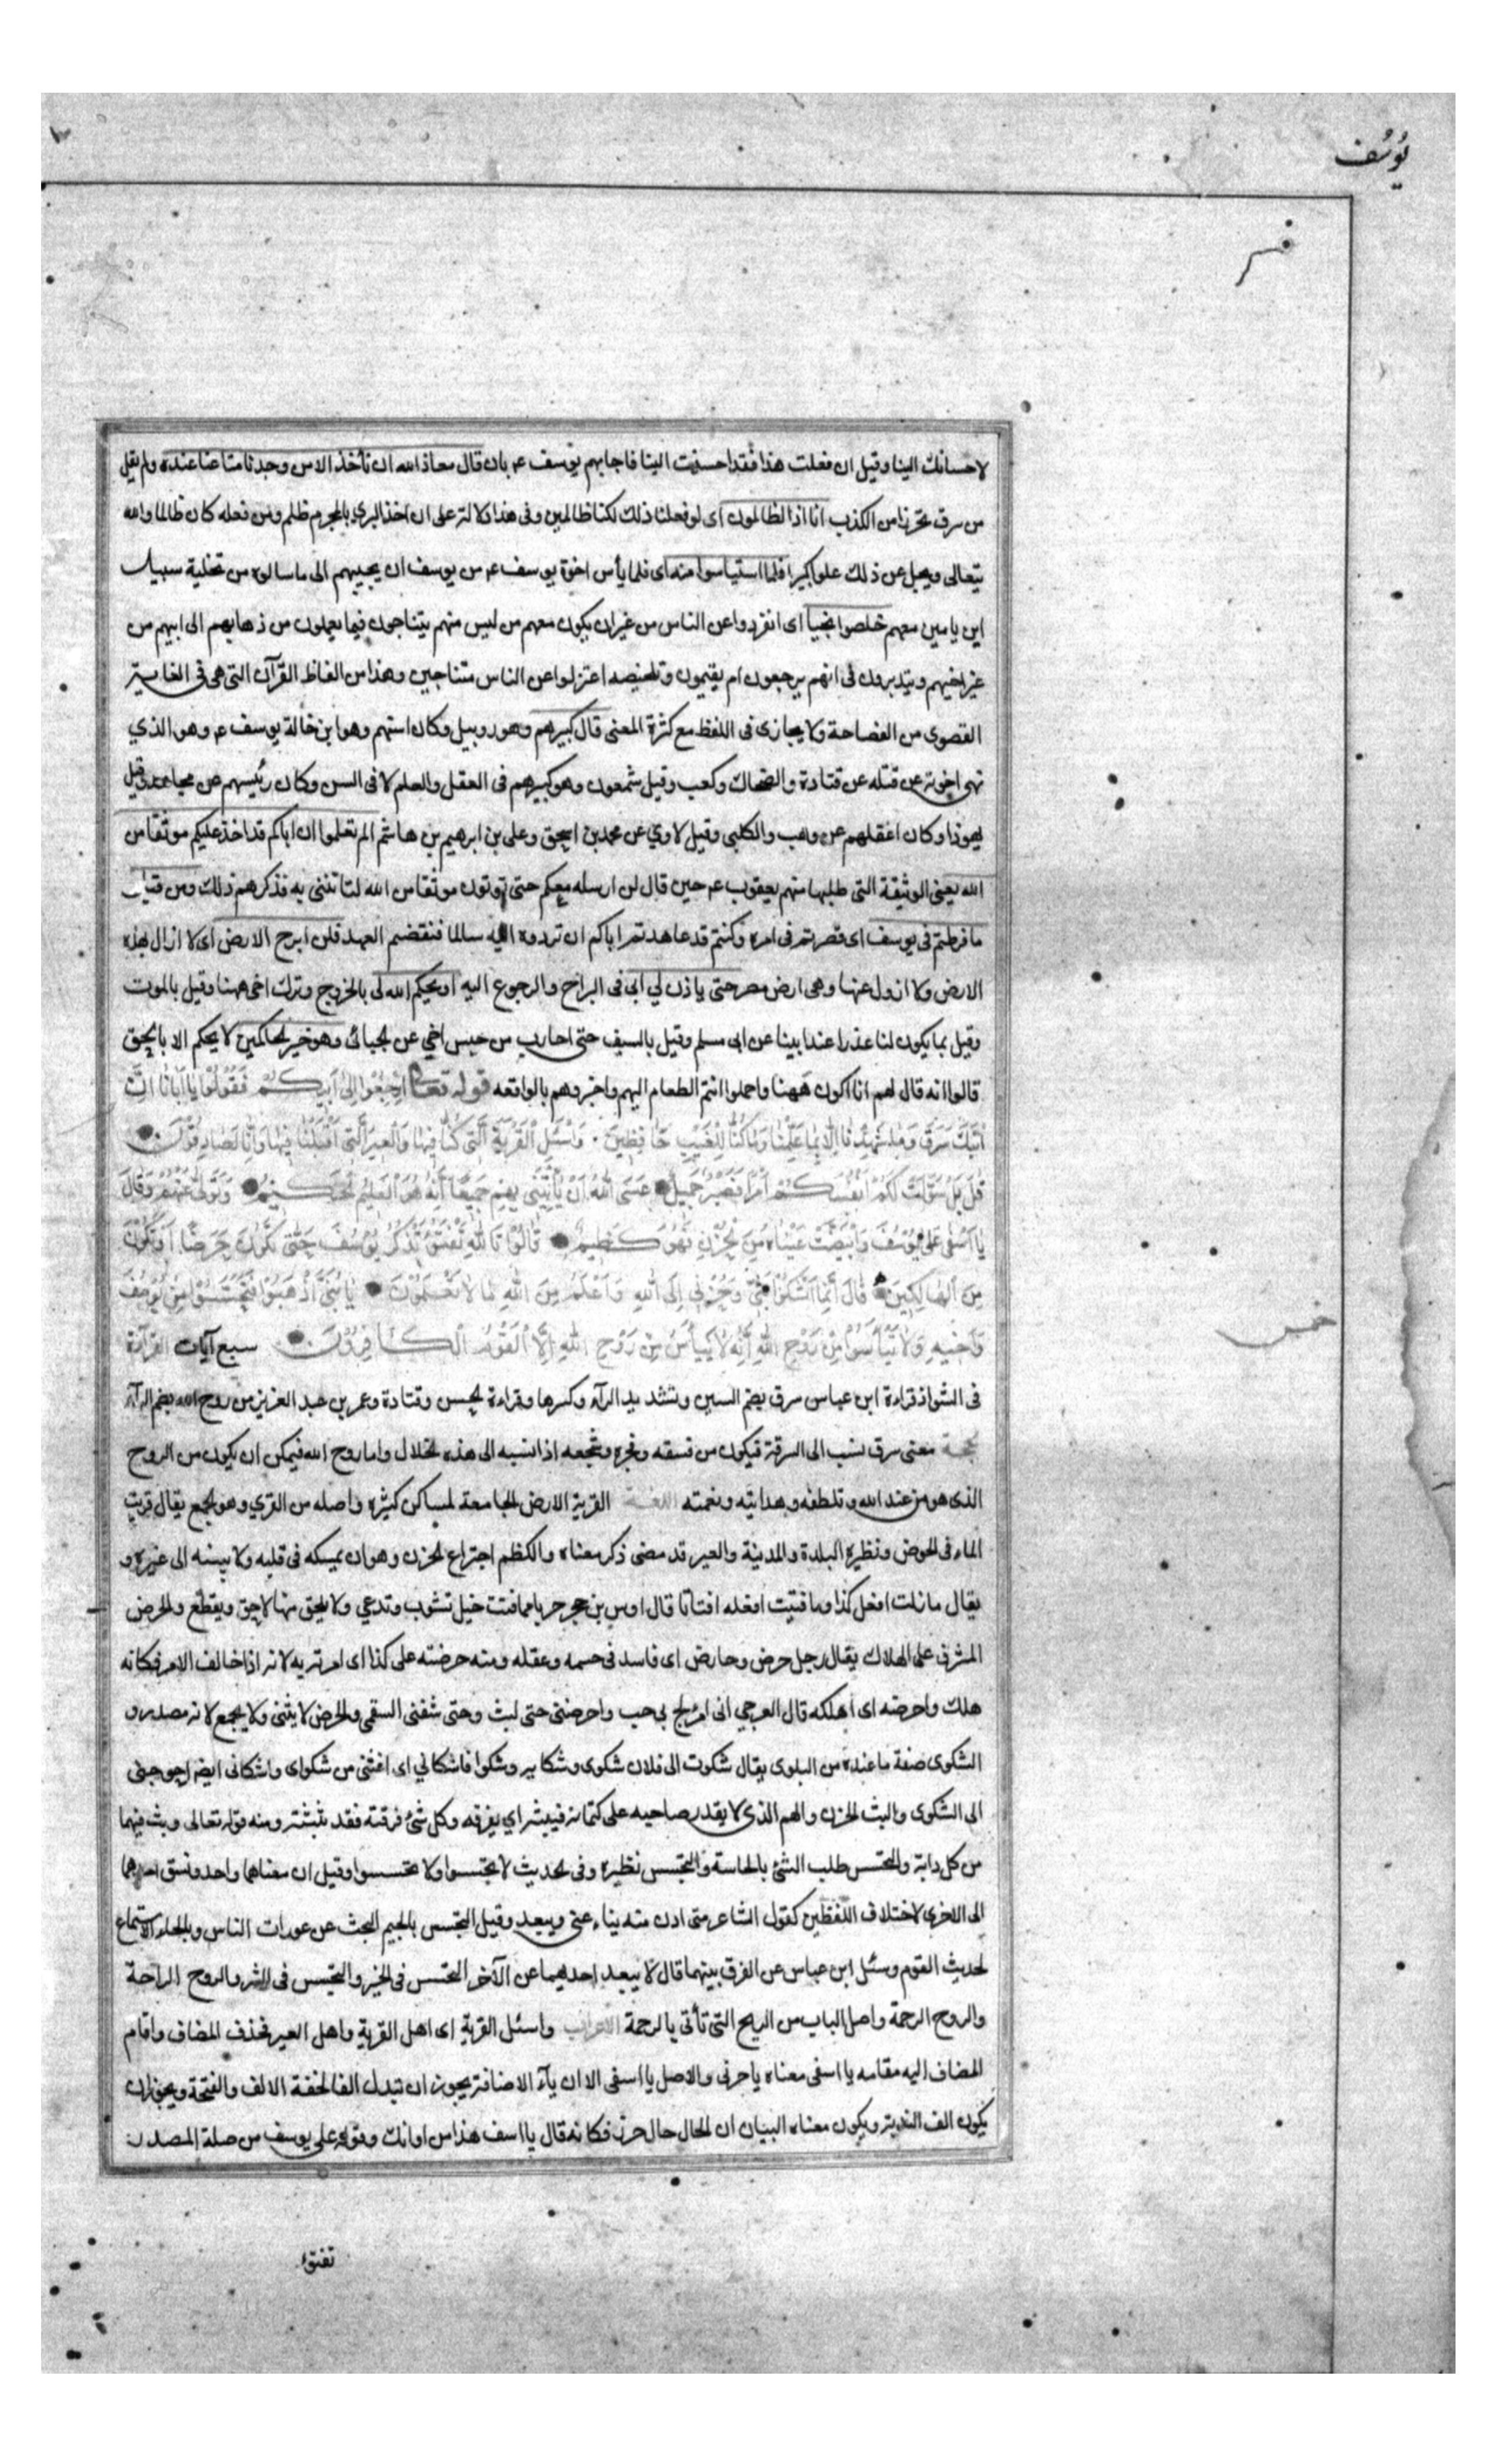 يُوسُف
لاحسانك الينا وقيل ان فعلت هذا فقد احسنت الينا فاجابهم يوسف ع بان قال معاذ الله ان نأخذ الا من وجدنا متاعنا عنده ولم يقل
من سرق تحرزا من الكذب انا اذا لظالمون اى لو فعلنا ذلك لكنا ظالمين وفى هذا دلالة على ان اخذ البرى بالمجرم ظلم ومن فعله كان ظالما والله
يتعالى ويجل عن ذلك علوا كبيرا فلما استياسوا منه اى فلما يأس اخوة يوسف ع من يوسف ان يجيبهم الى ما سالوه من تخلية سبيل
ابن يامين معهم خلصوا نجيا اى انفردوا عن الناس من غير ان يكون معهم من ليس منهم يتناجون فيما يعملون من ذهابهم الى ابيهم من
غير اخيهم ويتدبرون فى انهم يرجعون ام يقيمون وتلخيصه اعتزلوا عن الناس متناجين وهذا من الفاظ القرآن التى هى فى الغاية
القصوى من الفصاحة ولا يجازى فى اللفظ مع كثرة المعنى قال كبيرهم وهو روبيل وكان اسنهم وهو ابن خالة يوسف ع وهو الذي
نهى اخوته عن قتله عن قتادة والضحاك وكعب وقيل شمعون وهو كبيرهم فى العقل والعلم لا فى السن وكان رئيسهم عن مجاهد وقيل
يهوذا وكان اعقلهم عن وهب والكلبى وقيل لاوي عن محمد بن اسحق وعلى بن ابرهيم بن هاشم الم تعلموا ان اباكم قد اخذ عليكم موثقا من
الله يعنى الوثيقة التى طلبها منهم يعقوب ع حين قال لن ارسله معكم حتى تؤتون موثقا من الله لتاتننى به فذكرهم ذلك ومن قبل
ما فرطتم فى يوسف اى قصرتم فى امره وكنتم قد عاهدتم اباكم ان تردوه اليه سالما فنقضتم العهد فلن ابرح الارض اى لا ازال بهذه
الارض ولا ازول عنها وهى ارض مصر حتى ياذن لي ابى فى البراح والرجوع اليه او يحكم الله لى بالخروج وترك اخى ههنا وقيل بالموت
وقيل بما يكون لنا عذرا عند ابينا عن ابى مسلم وقيل بالسيف حتى احارب من حبس اخي عن الجبائى وهو خير الحاكمين لا يحكم الا بالحق
قالوا انه قال لهم انا اكون ههنا واحملوا انتم الطعام اليهم واخبروهم بالواقعه قوله تعالى ارْجِعُوا اِلى اَبيكُمْ فَقُولُوا يا اَبانا اِنَّ
ابْنَكَ سَرَقَ وَما شَهِدْنا اِلّا بِما عَلِمْنا وَما كُنّا لِلْغَيْبِ حافِظينَ وَاسْئَلِ الْقَرْيَةَ الَّتى كُنّا فيها وَالْعيرَ الَّتى اَقْبَلْنا فيها وَاِنّا لَصادِقُونَ
قالَ بَلْ سَوَّلَتْ لَكُمْ اَنْفُسُكُمْ اَمْرًا فَصَبْرٌ جَميلٌ عَسَى اللهُ اَنْ يَأْتِيَنى بِهِمْ جَميعًا اِنَّهُ هُوَ الْعَليمُ الْحَكيمُ وَتَوَلّى عَنْهُمْ وَقالَ
يا اَسَفى عَلى يُوسُفَ وَابْيَضَّتْ عَيْناهُ مِنَ الْحُزْنِ فَهُوَ كَظيمٌ قالُوا تَاللهِ تَفْتَؤُ تَذْكُرُ يُوسُفَ حَتّى تَكُونَ حَرَضًا اَوْ تَكُونَ
مِنَ الْهالِكينَ قالَ اِنَّما اَشْكُوا بَثّى وَحُزْنى اِلَى اللهِ وَاَعْلَمُ مِنَ اللهِ ما لا تَعْلَمُونَ يا بَنِىَّ اذْهَبُوا فَتَحَسَّسُوا مِنْ يُوسُفَ
وَاَخيهِ وَلا تَيْأَسُوا مِنْ رَوْحِ اللهِ اِنَّهُ لا يَيْأَسُ مِنْ رَوْحِ اللهِ اِلَّا الْقَوْمُ الْكافِرُونَ سبع آيات القرآءة
فى الشواذ قراءة ابن عباس سرق بضم السين وتشديد الرآء وكسرها وقراءة الحسن وقتادة وعمر بن عبد العزيز من روح الله بضم الرآء
الحجة معنى سرق نسب الى السرقة فيكون من فسقه وفجره وشجعه اذا نسبه الى هذه الخلال واما روح الله فيمكن ان يكون من الروح
الذى هو من عند الله وتلطفه وهدايته ونعمته اللغة القرية الارض الجامعة لمساكن كثيره واصله من القرى وهو الجمع يقال قريت
الماء فى الحوض ونظيره البلدة والمدينة والعير قد مضى ذكر معناه والكظم اجتراع الحزن وهو ان يمسكه فى قلبه ولا يبثه الى غيره و
يقال ما زلت افعل كذا وما فتيت افعله افتاتا قال اوس بن حجر فما فتئت خيل تثوب وتدعي ولا يلحق منها لاحق ويقطع والحرض
المشرف على الهلاك يقال رجل حرض وحارض اى فاسد فى جسمه وعقله ومنه حرضته على كذا اى امرته به لانه اذا خالف الامر فكانه
هلك واحرضه اى اهلكه قال العرجي انى امرؤ لج بى حب واحرضنى حتى بليت وحتى شفنى السقم والحرض لا يثنى ولا يجمع لانه مصدر و
الشكوى صفة ما عنده من البلوى يقال شكوت الى فلان شكوى وشكاية وشكوا فاشكاني اى اغثنى من شكواى واشكانى ايضا احوجنى
الى الشكوى والبث الحزن والهم الذى لا يقدر صاحبه على كتمانه فيبثه اي يفرقه وكل شئ فرقته فقد بثثته ومنه قوله تعالى وبث فيها
من كل دابة والتحسس طلب الشئ بالحاسة والتجسس نظيره وفى الحديث لا تجسسوا ولا تحسسوا وقيل ان معناهما واحد ونسق احدهما
الى الاخرى لاختلاف اللفظين كقول الشاعر متى ادن منه يناء عنى ويبعد وقيل التجسس بالجيم البحث عن عورات الناس وبالحاء الاستماع
لحديث القوم وسئل ابن عباس عن الفرق بينهما قال لا يبعد احدهما عن الآخر التحسس فى الخير والتجسس فى الشر والروح الراحة
والروح الرحمة واصل الباب من الريح التى تأتى بالرحمة الاعراب واسئل القرية اى اهل القرية واهل العير فحذف المضاف واقام
المضاف اليه مقامه يا اسفى معناه يا حزنى والاصل يا اسفى الا ان يآء الاضافة يجوز ان تبدل الفا لخفة الالف والفتحة ويجوز ان
يكون الف الندبة ويكون معناه البيان ان الحال حال حزن فكانه قال يا اسف هذا من اوانك وقوله على يوسف من صلة المصدر
تفتؤا